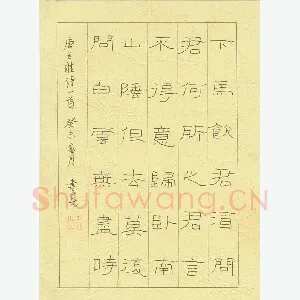 下馬飲君酒問
君何所之君言
不得意歸臥南
山陲但去莫復
問白雲無盡時
Shufawang.CN